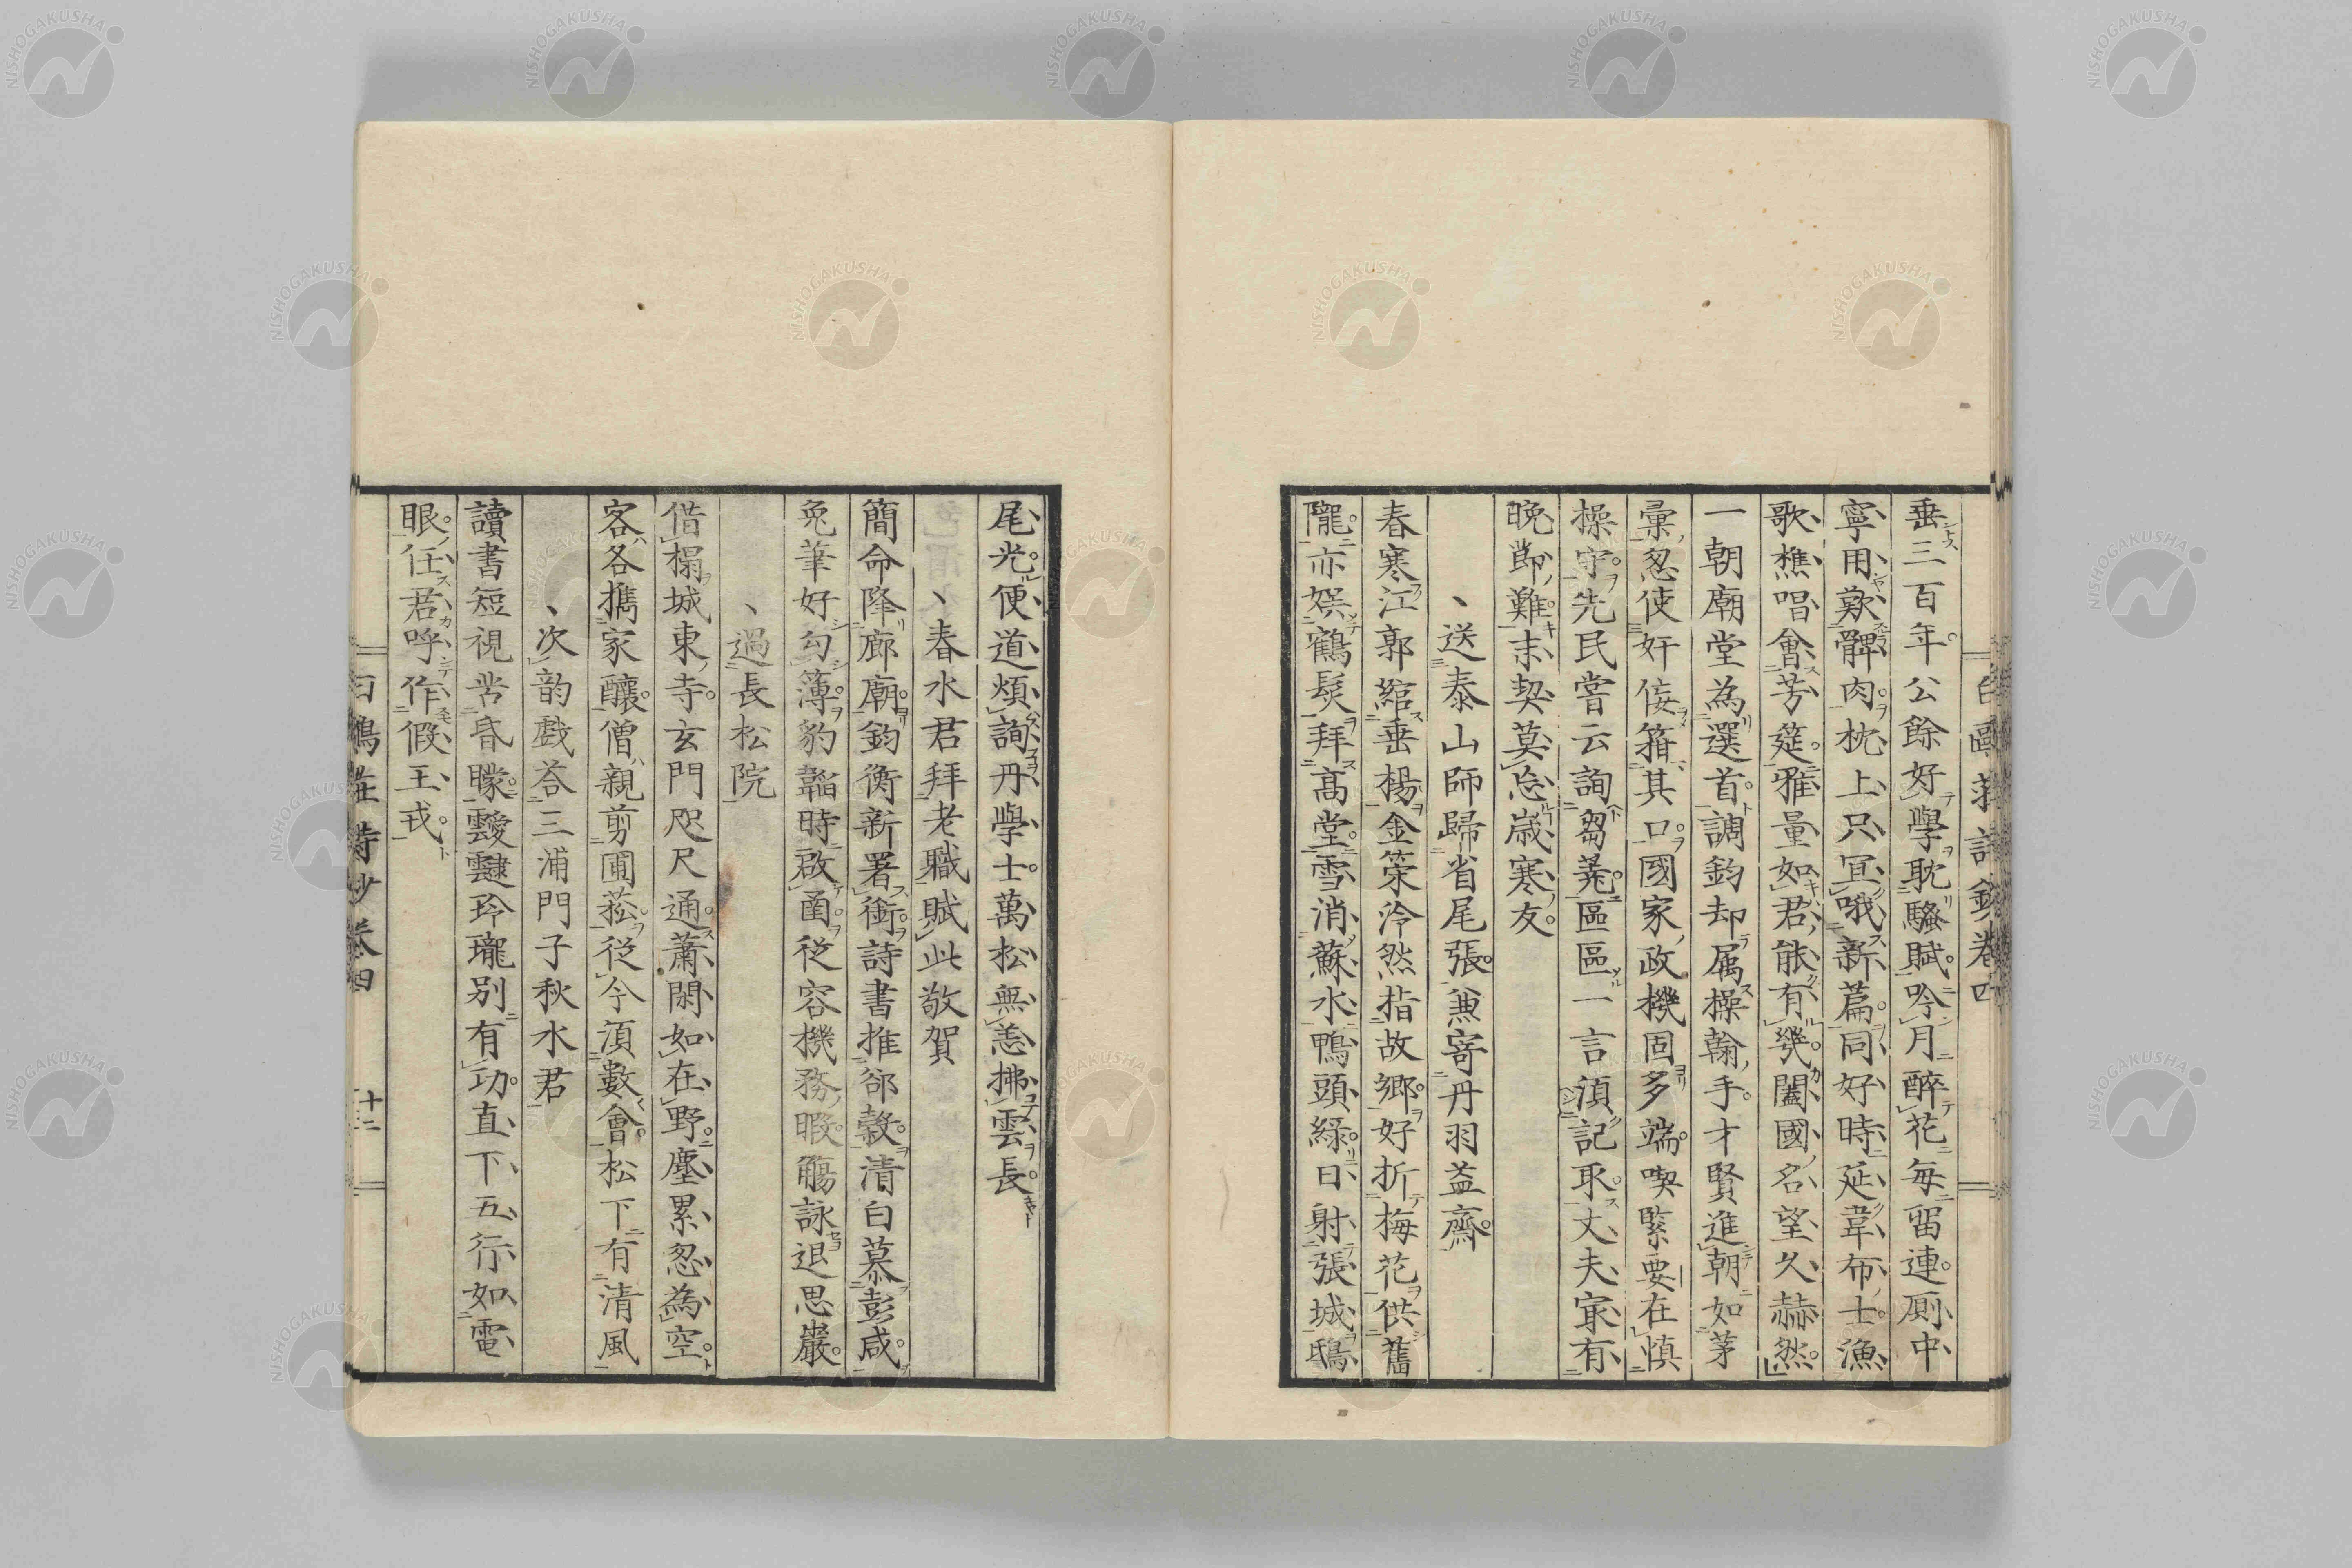 垂三百年公餘好學耽騷賦吟月醉花每留連厠中
寧用歎髀肉枕上只冥哦新篇同好時延韋布士漁
歌樵唱會芳筵雅量如君能有幾闔國名望久赫然
一朝廟堂為選首調鈞却属操翰手才賢進朝如茅
彙忽使奸佞箝其口國家政機固多端喫緊要在慎
操守先民嘗云詢芻蕘區區一言須記取丈夫寂有
晩節難末契莫忘歳寒友
送泰山師歸省尾張兼寄丹羽益齋
春寒江郭綰垂楊金策泠然指故郷好折梅花供舊
隴亦娯鶴髮拜高堂雪消蘇水鴨頭綠日射張城鴟
尾光便道煩詢丹學士萬松無恙拂雲長
春水君拜老職賦此敬賀
簡命降廊廟鈞衡新署銜詩書推郤縠清白慕彭咸
兔筆好勾簿豹韜時啟函從容機務暇觴詠退思巖
過長松院
借榻城東寺玄門咫尺通蕭閑如在野塵累忽為空
客各携家釀僧親剪圃菘從今須數會松下有清風
次韵戲荅三浦門子秋水君
讀書短視苦昏矇靉靆玲瓏別有功直下五行如電
眼任君呼作假王戎
白鷗莊詩鈔卷四
十二